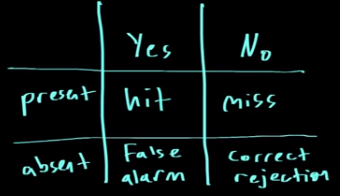 Yes No
present hit miss
absent False alarm correct rejection